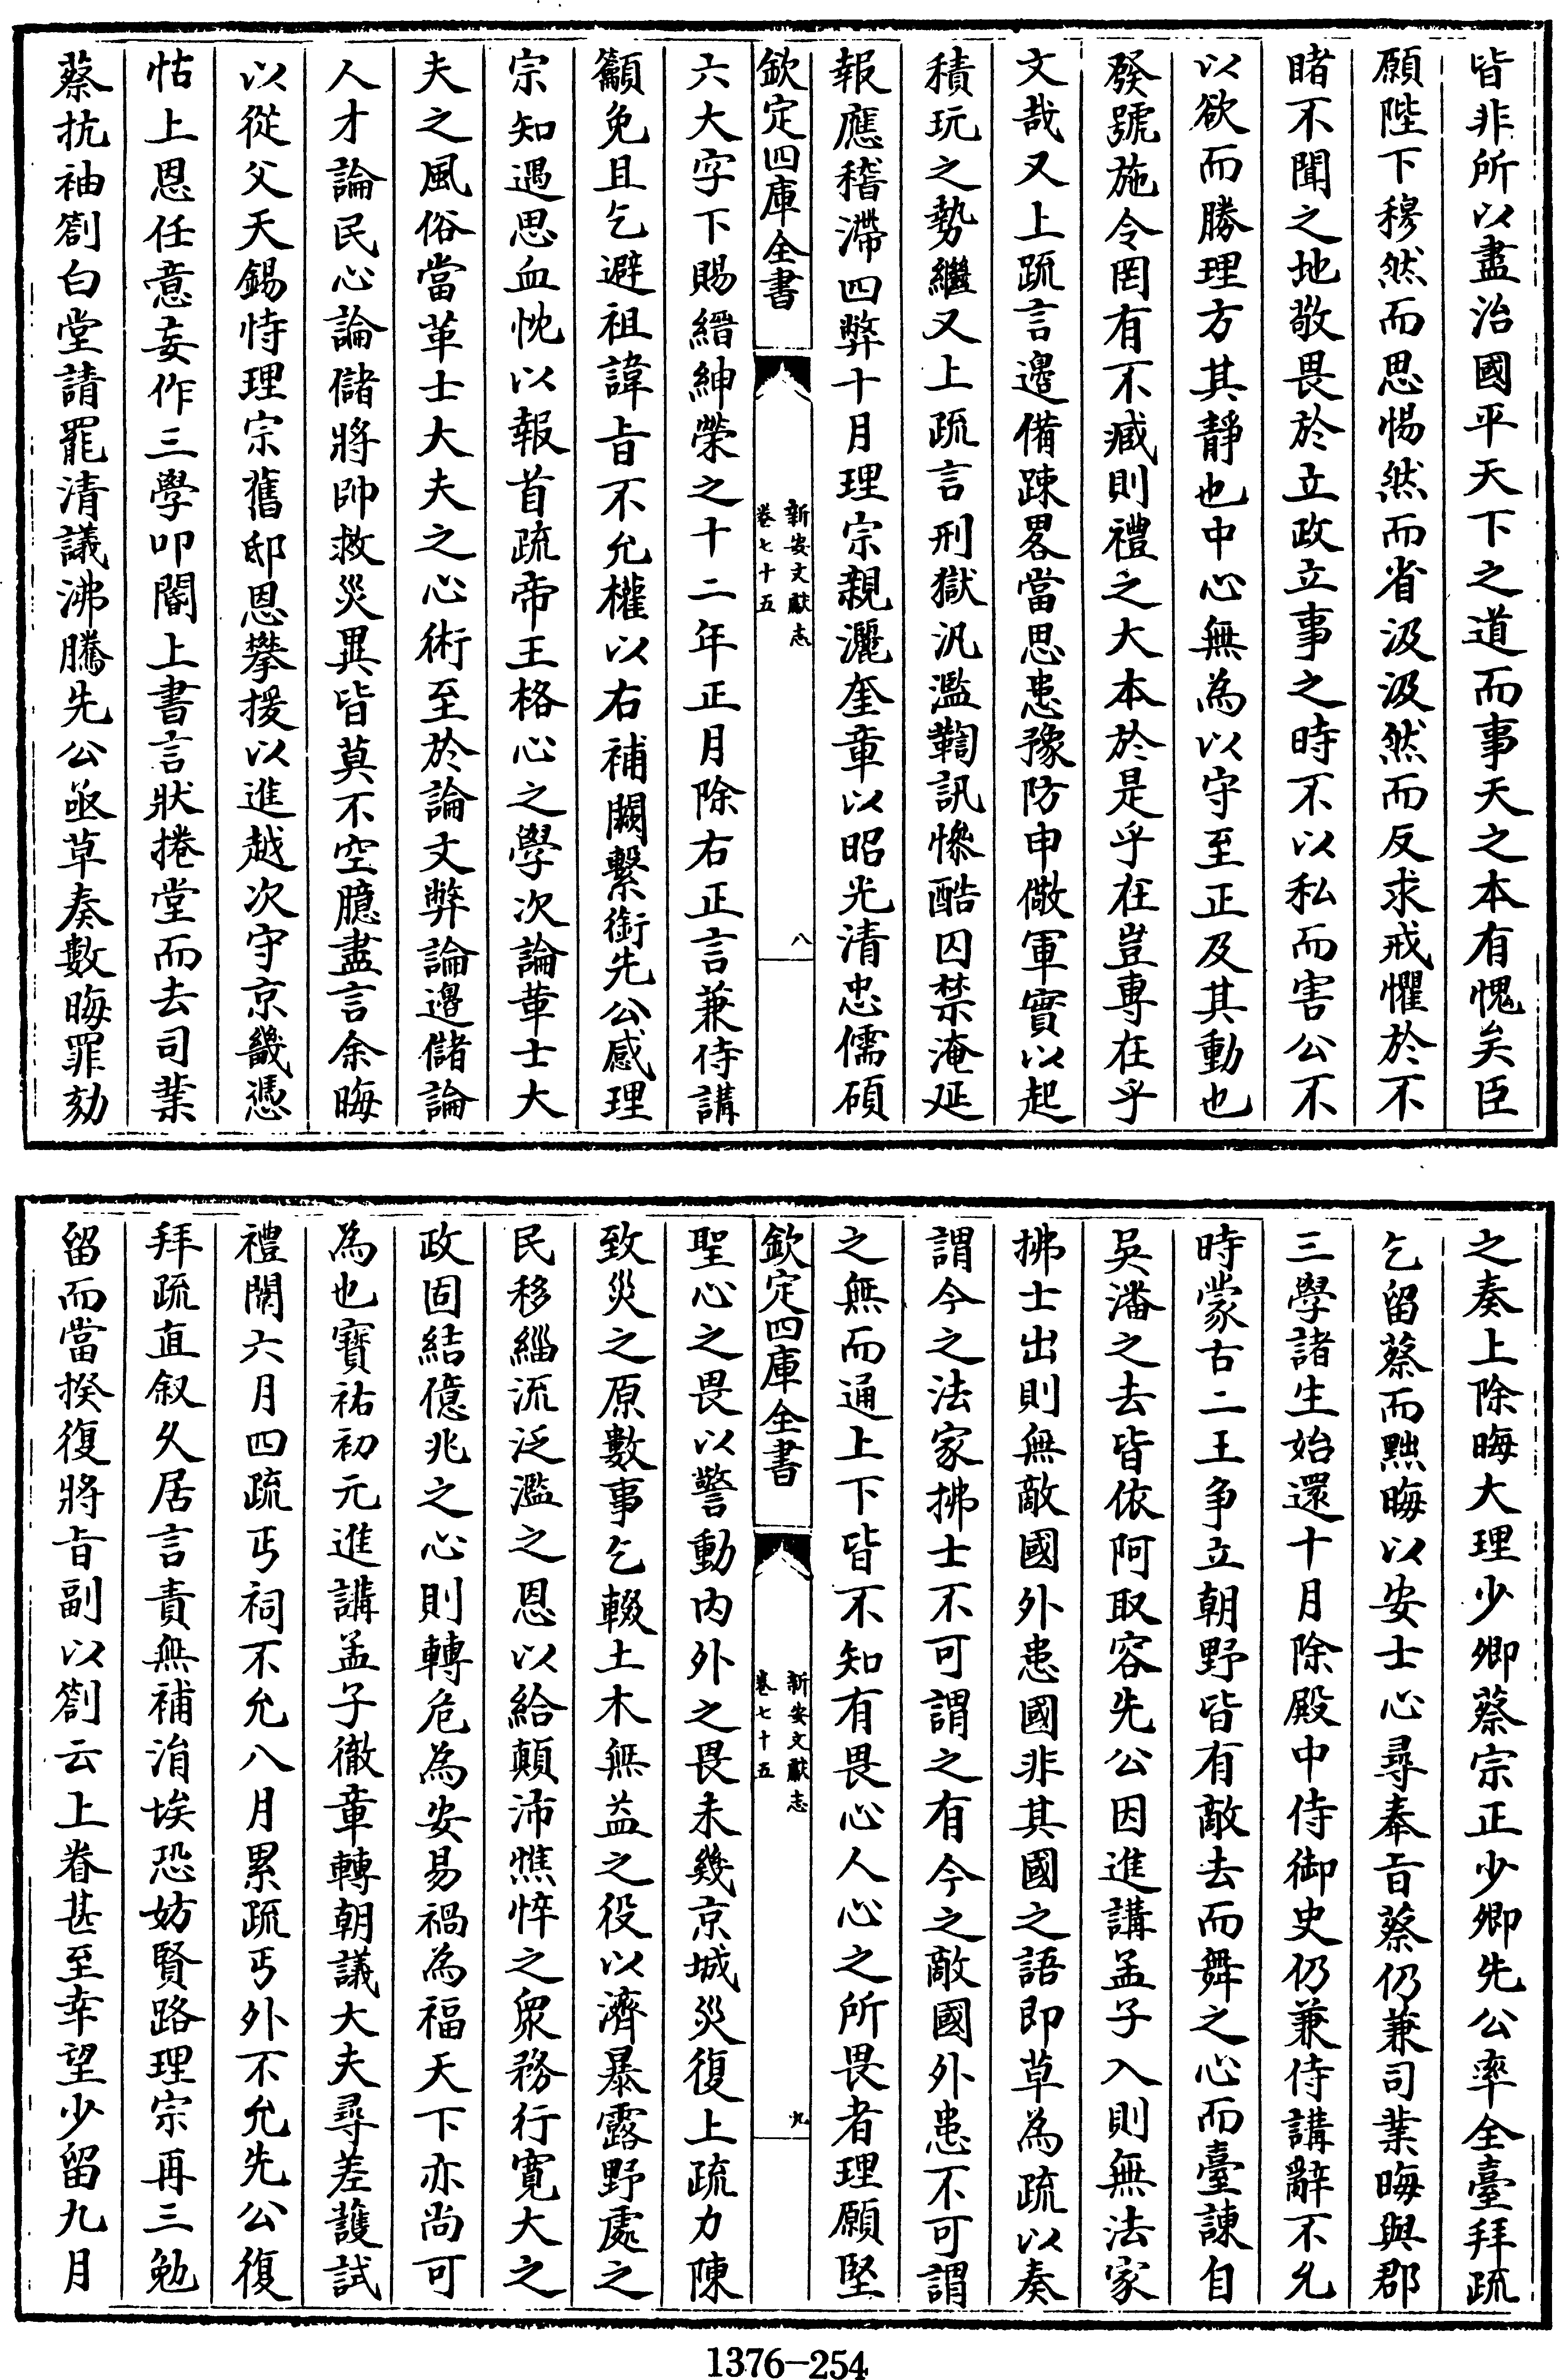 皆非所以盡治國平天下之道而事天之本有愧矣臣
願陛下穆然而思惕然而省汲汲然而反求戒懼於不
睹不聞之地敬畏於立政立事之時不以私而害公不
以欲而勝理方其靜也中心無為以守至正及其動也
發號施令罔有不臧則禮之大本於是乎在豈專在乎
文哉又上疏言邊備踈畧當思患豫防申儆軍實以起
積玩之勢繼又上疏言刑獄汎濫鞫訊慘酷囚禁淹延
報應稽滯四弊十月理宗親灑奎章以昭光清忠儒碩
欽定四庫全書
新安文獻志
卷七十五
八
六大字下賜縉紳榮之十二年正月除右正言兼侍講
籲免且乞避祖諱㫖不允權以右補闕繫銜先公感理
宗知遇思血忱以報首疏帝王格心之學次論革士大
夫之風俗當革士大夫之心術至於論文弊論邊儲論
人才論民心論儲將帥救災異皆莫不空臆盡言余晦
以從父天錫恃理宗舊邸恩攀援以進越次守京畿憑
怙上恩任意妄作三學叩閽上書言狀捲堂而去司業
蔡抗袖劄白堂請罷清議沸騰先公亟草奏數晦罪劾
之奏上除晦大理少卿蔡宗正少卿先公率全臺拜疏
乞留蔡而黜晦以安士心尋奉㫖蔡仍兼司業晦與郡
三學諸生始還十月除殿中侍御史仍兼侍講辭不允
時蒙古二王爭立朝野皆有敵去而舞之心而臺諫自
吳潘之去皆依阿取容先公因進講孟子入則無法家
拂士出則無敵國外患國非其國之語即草為疏以奏
謂今之法家拂士不可謂之有今之敵國外患不可謂
之無而通上下皆不知有畏心人心之所畏者理願堅
欽定四庫全書
新安文獻志
卷七十五
九
聖心之畏以警動内外之畏未幾京城災復上疏力陳
致災之原數事乞輟土木無益之役以濟暴露野處之
民移緇流泛濫之恩以給顛沛憔悴之衆務行寛大之
政固結億兆之心則轉危為安易禍為福天下亦尚可
為也寶祐初元進講孟子徹章轉朝議大夫尋差護試
禮闈六月四疏丐祠不允八月累疏丐外不允先公復
拜疏直叙久居言責無補涓埃恐妨賢路理宗再三勉
留而當揆復將㫖副以劄云上眷甚至幸望少留九月
1376-254